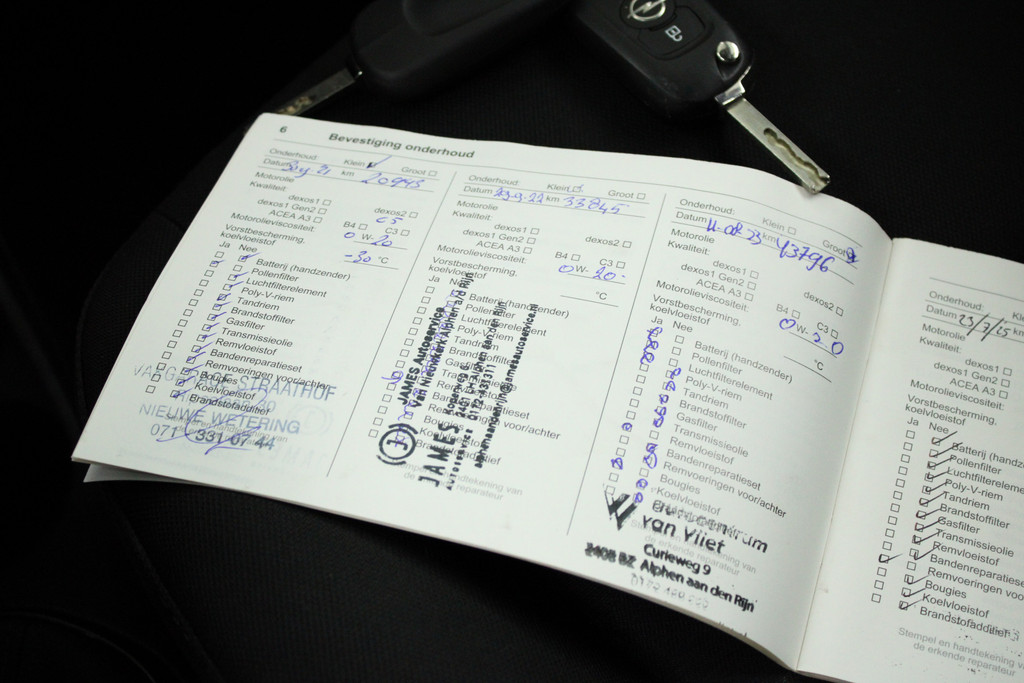 6 Bevestiging onderhoud
Onderhoud: Klein Groot
Datum 21 km 20945
Motorolie
Kwaliteit:
dexos1
dexos1 Gen2 dexos2
ACEA A3 C5
Motorolieviscositeit: B4 C3
0 W- 20
Vorstbescherming,
koelvloeistof -30 °C
Ja Nee
Batterij (handzender)
Pollenfilter
Luchtfilterelement
Poly-V-riem
Tandriem
Brandstoffilter
Gasfilter
Transmissieolie
Remvloeistof
Bandenreparatieset
Remvoeringen voor/achter
Bougies
Koelvloeistof
Brandstofadditief
STRAATHOF
NIEUWE WETERING
071 - 331 07 44
Onderhoud: Klein Groot
Datum km 33845
Motorolie
Kwaliteit:
dexos1
dexos1 Gen2 dexos2
ACEA A3
Motorolieviscositeit: B4 C3
0 W- 20-
Vorstbescherming,
koelvloeistof °C
Ja Nee
Batterij (handzender)
Pollenfilter
Luchtfilterelement
Poly-V-riem
Tandriem
Koelvloeistof
Brandstofadditief
Stempel en handtekening van
de erkende reparateur
JAMES Autoservice
JAMES
AUTOSERVICE
Onderhoud: Klein Groot
Datum 11-08-23 km 43796
Motorolie
Kwaliteit:
dexos1
dexos1 Gen2
ACEA A3 dexos2
Motorolieviscositeit: B4 C3
0 W- 20
Vorstbescherming,
koelvloeistof °C
Ja Nee
Batterij (handzender)
Pollenfilter
Luchtfilterelement
Poly-V-riem
Tandriem
Brandstoffilter
Gasfilter
Transmissieolie
Remvloeistof
Bandenreparatieset
Remvoeringen voor/achter
Bougies
Koelvloeistof
van Vliet
Curieweg 9
2408 BZ Alphen aan den Rijn
Onderhoud: Kl
Datum 23/7/25 km
Motorolie
Kwaliteit:
dexos1
dexos1 Gen2
ACEA A3
Motorolieviscositeit:
Vorstbescherming,
koelvloeistof
Ja Nee
Batterij (handz
Pollenfilter
Luchtfilterelement
Poly-V-riem
Tandriem
Brandstoffilter
Gasfilter
Transmissieolie
Remvloeistof
Bandenreparatieset
Remvoeringen voo
Bougies
Koelvloeistof
Brandstofadditief
Stempel en handtekening v
de erkende reparateur